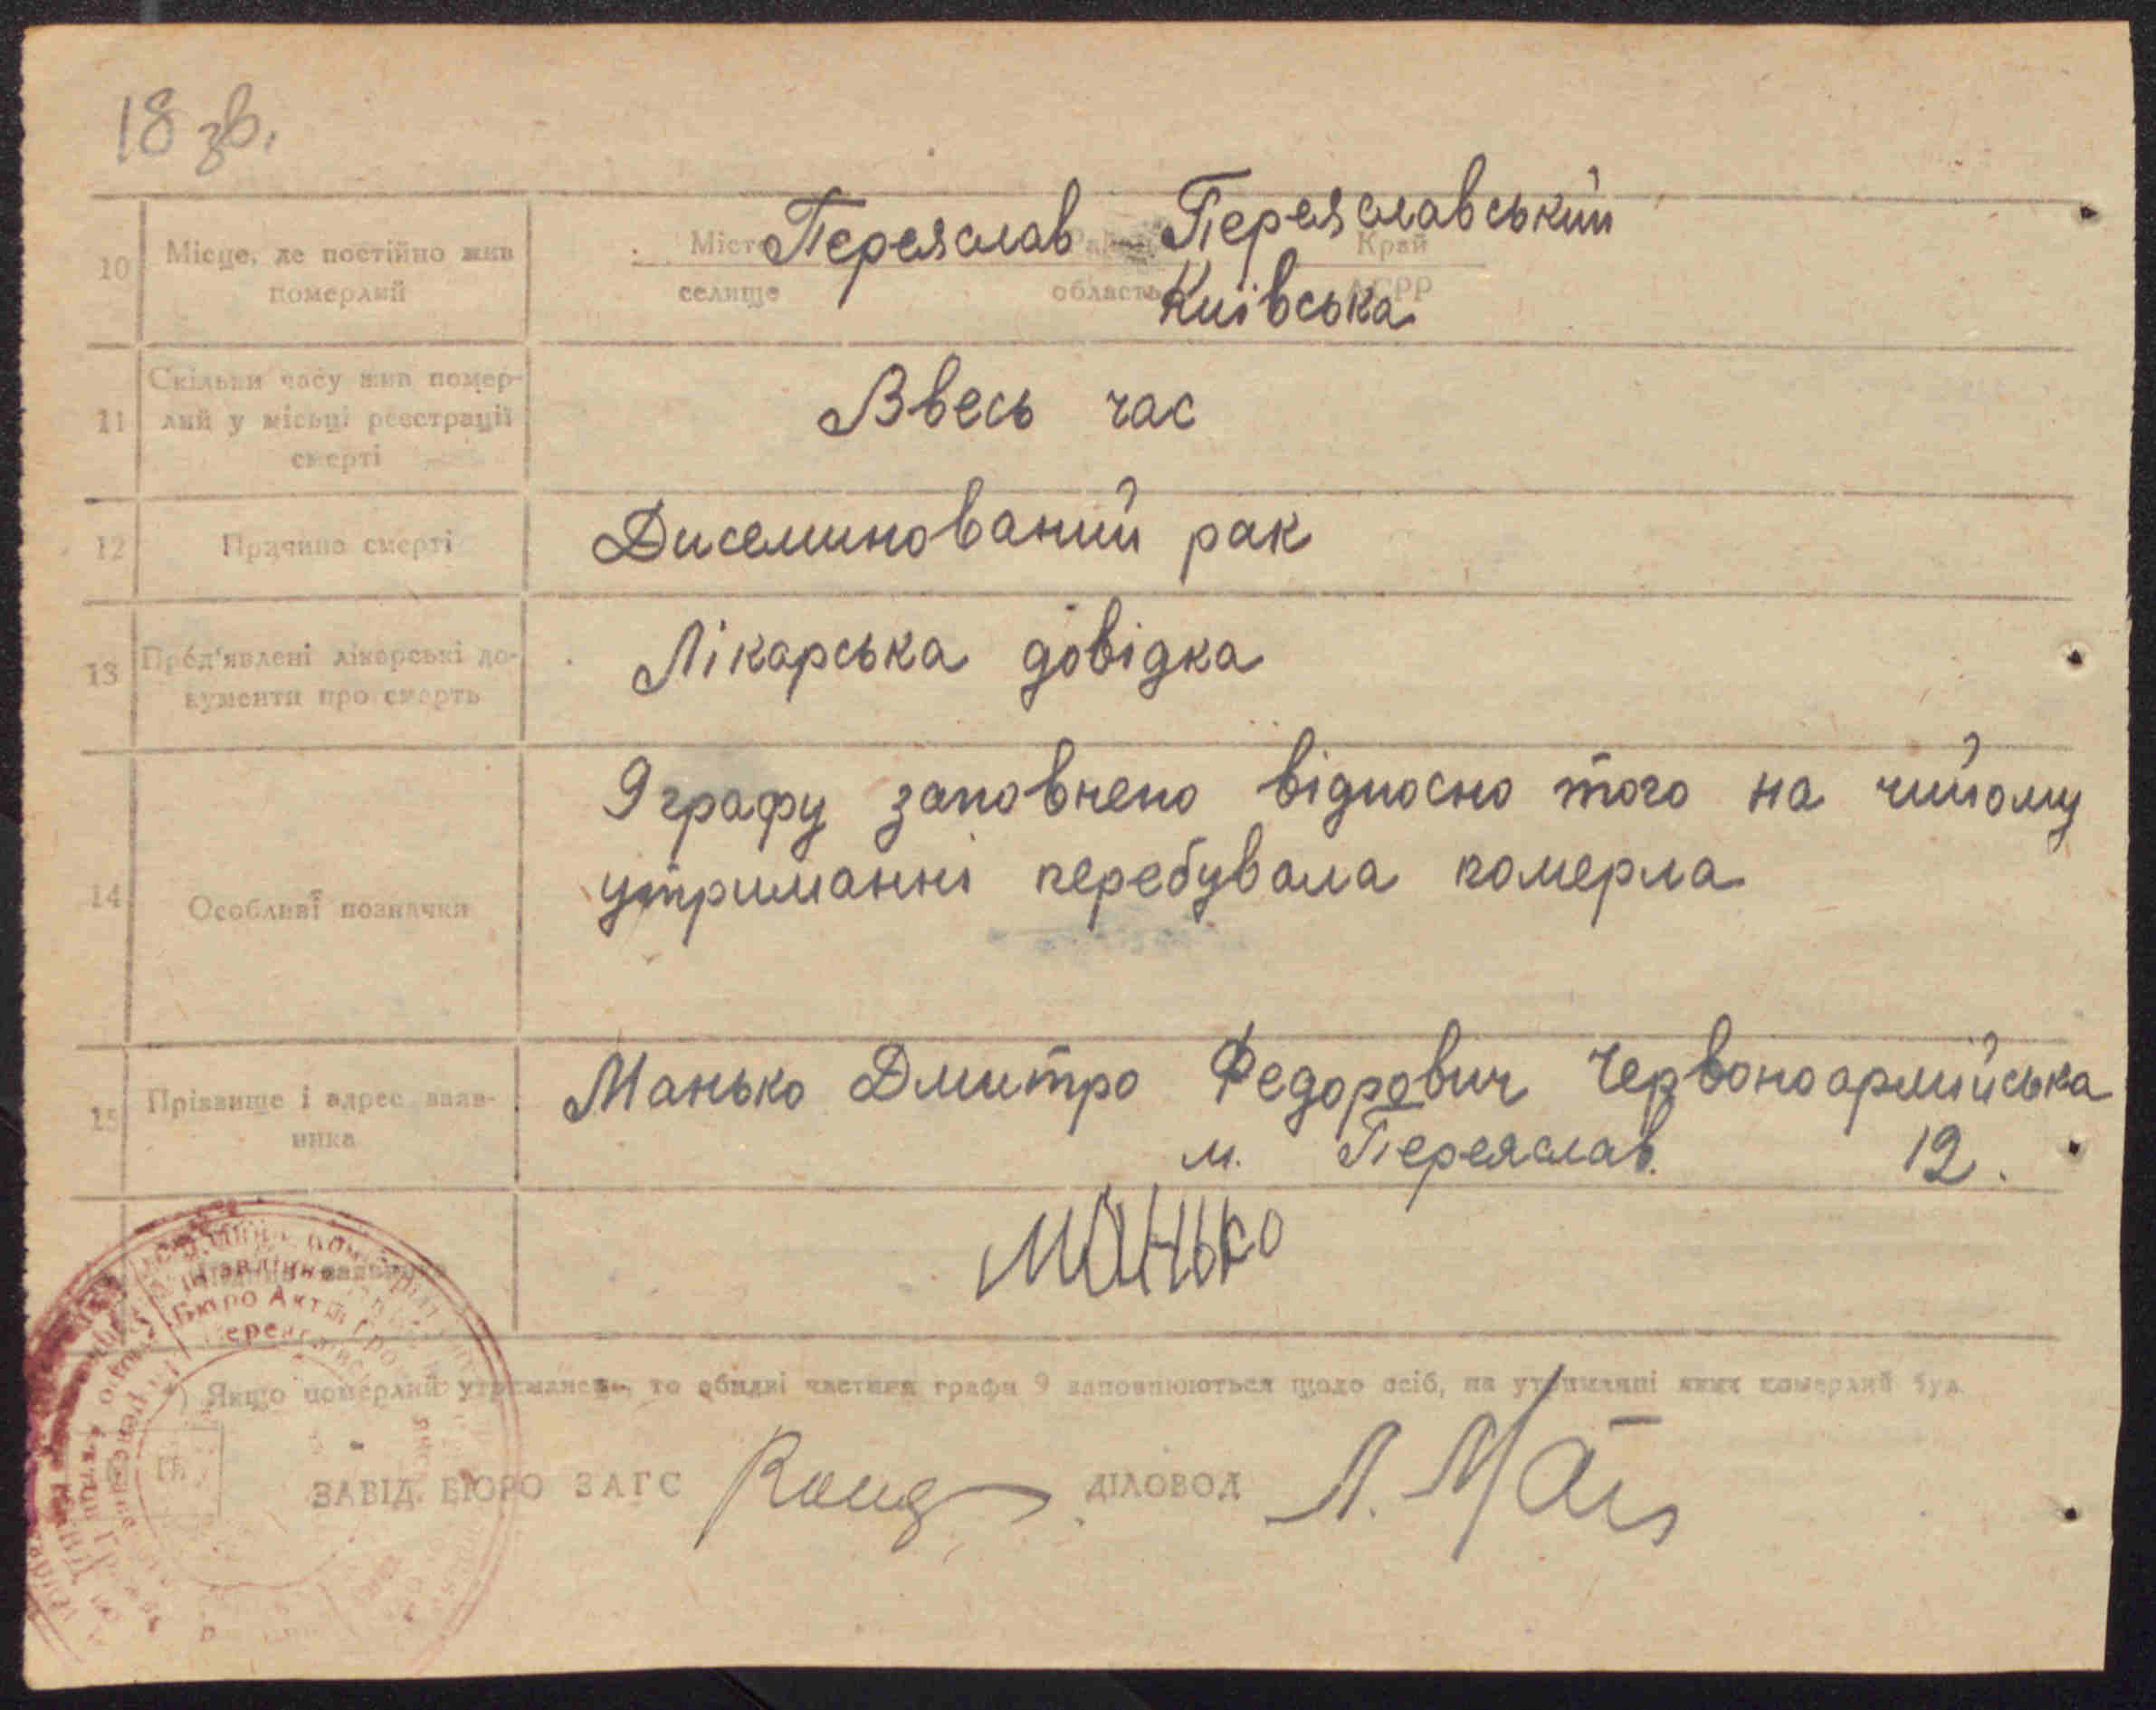 18 зв.
10 Місце, де постійно жив померлий
Місто Переяслав Район Переяславський Край
селище область Київська АСРР
11 Скільки часу жив помер-
лий у місьці реєстрації
смерті
Ввесь час
12 Причина смерті Дисеминований рак
13 Пред'явлені лікарські до-
кументи про смерть
Лікарська довідка
14 Особливі позначки
9 графу заповнено відносно того на чийому
утриманні перебувала померла
15 Прізвище і адрес заяв-
ника
Манько Дмитро Федорович Червоноармійська
м. Переяслав. 12.
Манько
Бюро Актів
*) Якщо померлий утриманець, то обидві частини графи 9 заповнюються щодо осіб, на утриманні яких померлий був
ЗАВІД. БЮРО ЗАГС ДІЛОВОД Л.